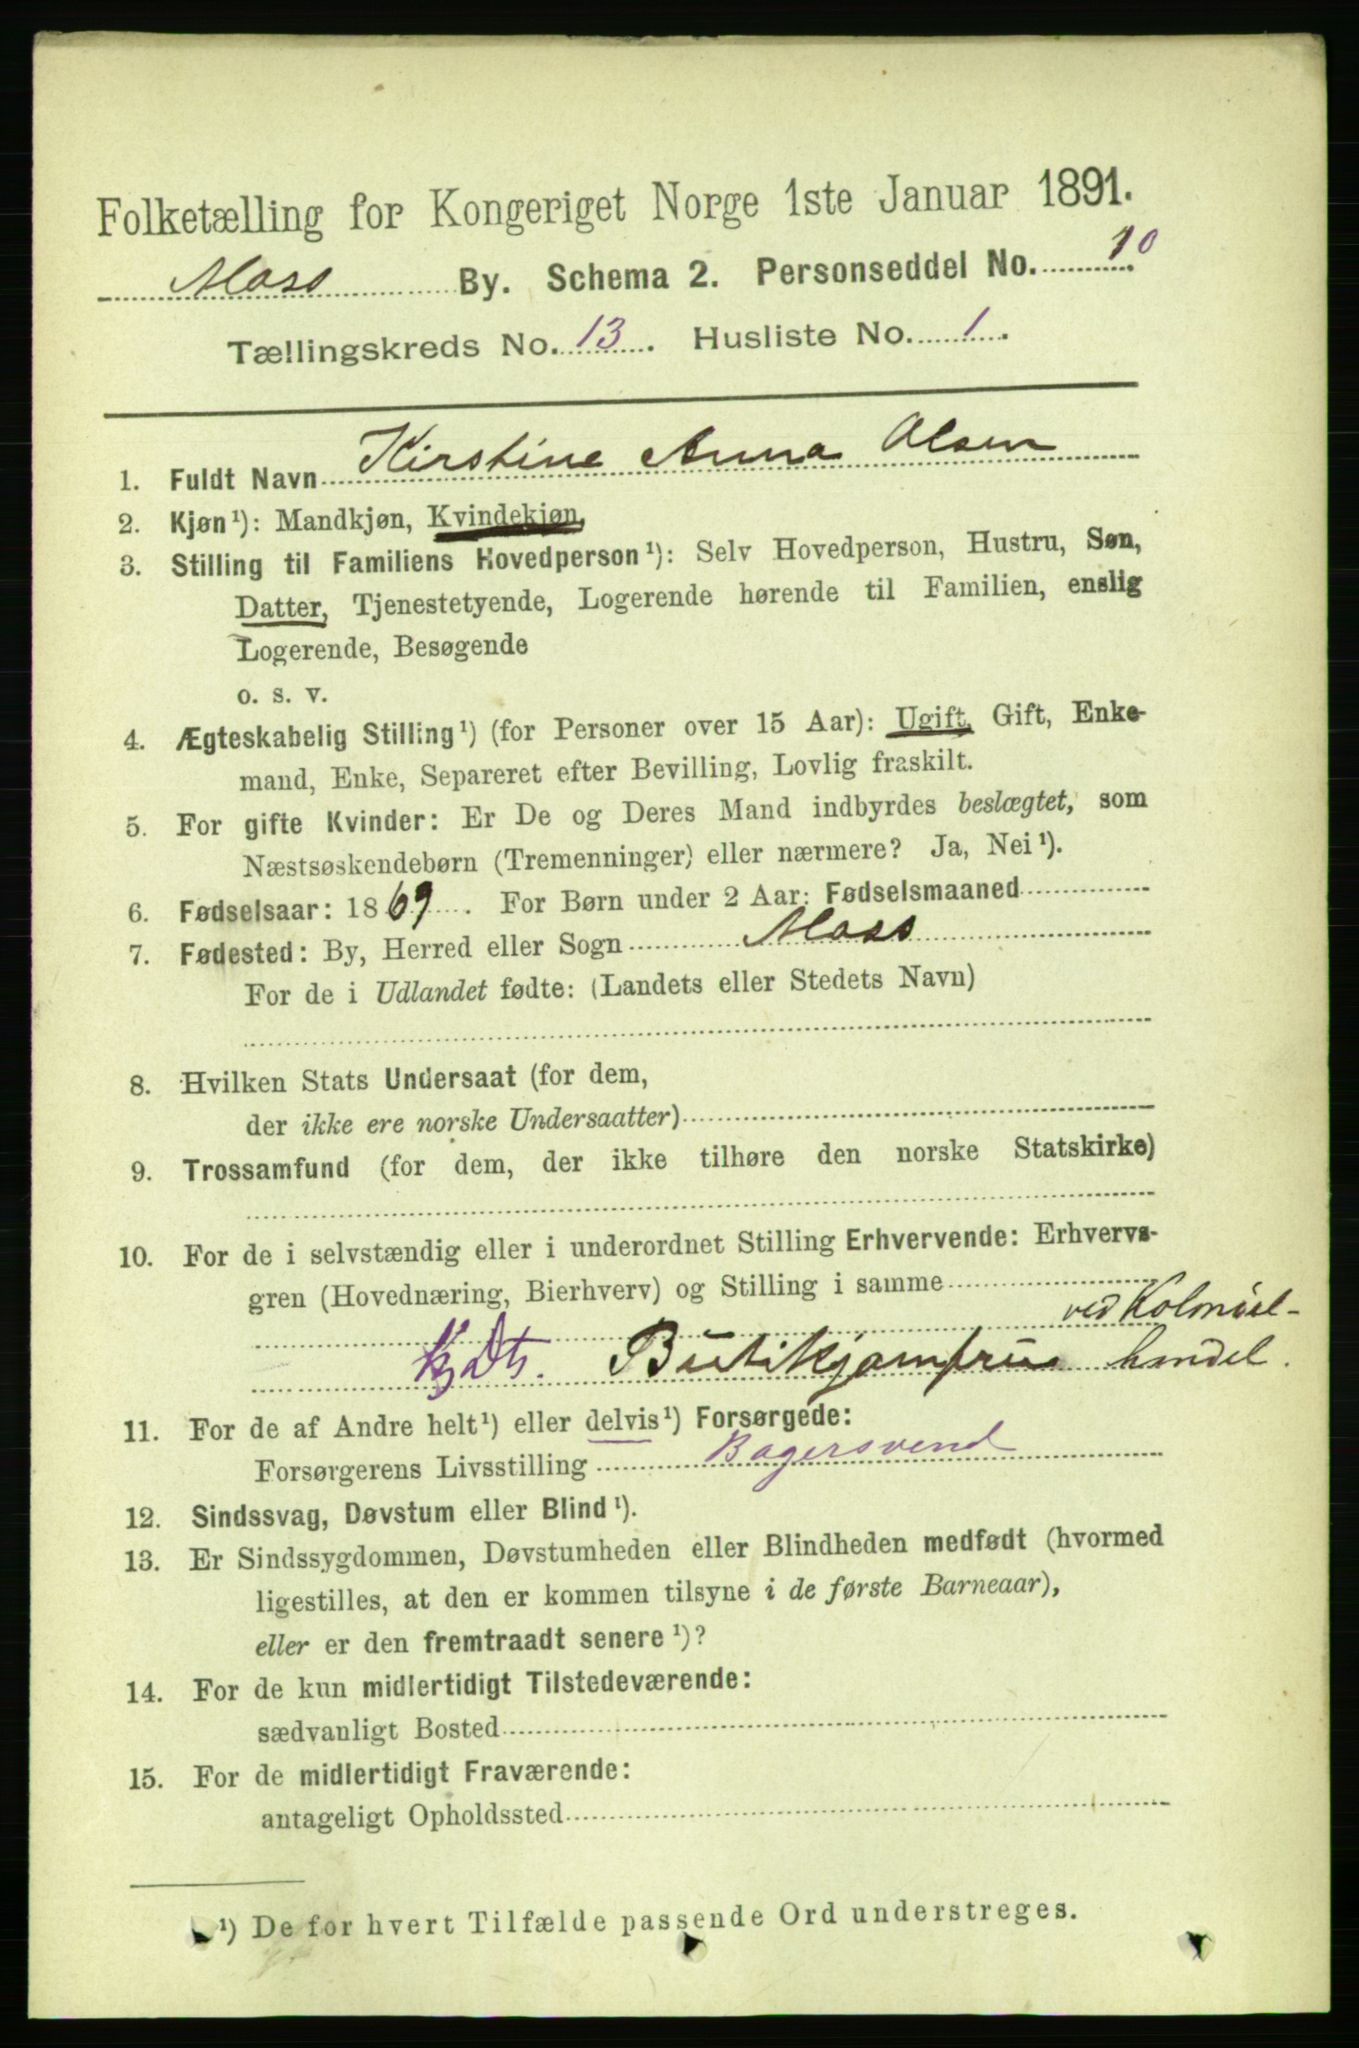 Folketælling for Kongeriget Norge 1ste Januar 1891.
Moss By. Schema 2. Personseddel No. 10
Tællingskreds No. 13. Husliste No. 1.
1. Fuldt Navn Kirstine Anna Olsen
2. Kjøn¹): Mandkjøn, Kvindekjøn,
3. Stilling til Familiens Hovedperson¹): Selv Hovedperson, Hustru, Søn,
Datter, Tjenestetyende, Logerende hørende til Familien, enslig
Logerende, Besøgende
o. s. v.
4. Ægteskabelig Stilling¹) (for Personer over 15 Aar): Ugift, Gift, Enke-
mand, Enke, Separeret efter Bevilling, Lovlig fraskilt.
5. For gifte Kvinder: Er De og Deres Mand indbyrdes beslægtet, som
Næstsøskendebørn (Tremenninger) eller nærmere? Ja, Nei¹).
6. Fødselsaar: 1869. For Børn under 2 Aar: Fødselsmaaned
7. Fødested: By, Herred eller Sogn Moss
For de i Udlandet fødte: (Landets eller Stedets Navn)
8. Hvilken Stats Undersaat (for dem,
der ikke ere norske Undersaatter)
9. Trossamfund (for dem, der ikke tilhøre den norske Statskirke)
10. For de i selvstændig eller i underordnet Stilling Erhvervende: Erhvervs-
gren (Hovednæring, Bierhverv) og Stilling i samme
ved Kolonial-
Butikjomfru handel.
11. For de af Andre helt¹) eller delvis¹) Forsørgede:
Forsørgerens Livsstilling Bagersvend
12. Sindssvag, Døvstum eller Blind¹).
13. Er Sindssygdommen, Døvstumheden eller Blindheden medfødt (hvormed
ligestilles, at den er kommen tilsyne i de første Barneaar),
eller er den fremtraadt senere¹)?
14. For de kun midlertidigt Tilstedeværende:
sædvanligt Bosted
15. For de midlertidigt Fraværende:
antageligt Opholdssted
¹) De for hvert Tilfælde passende Ord understreges.